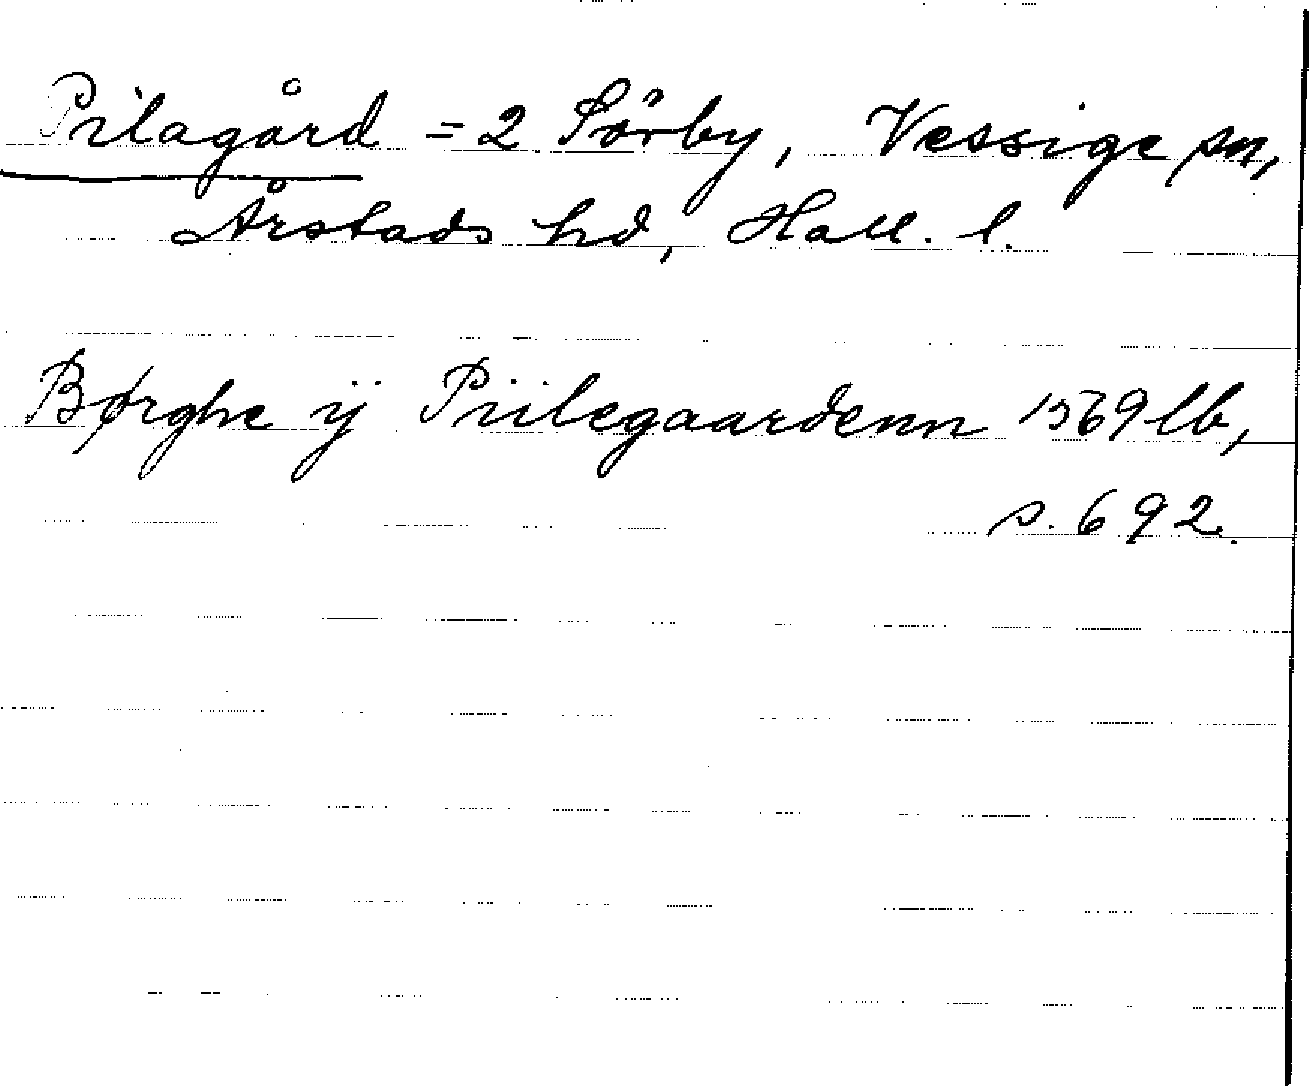 Pilagård = 2 Sörby, Vessige sn,
Årstads hd, Hall. l.
Børghe ÿ Piilegaardenn 1569 lb,
s. 692.